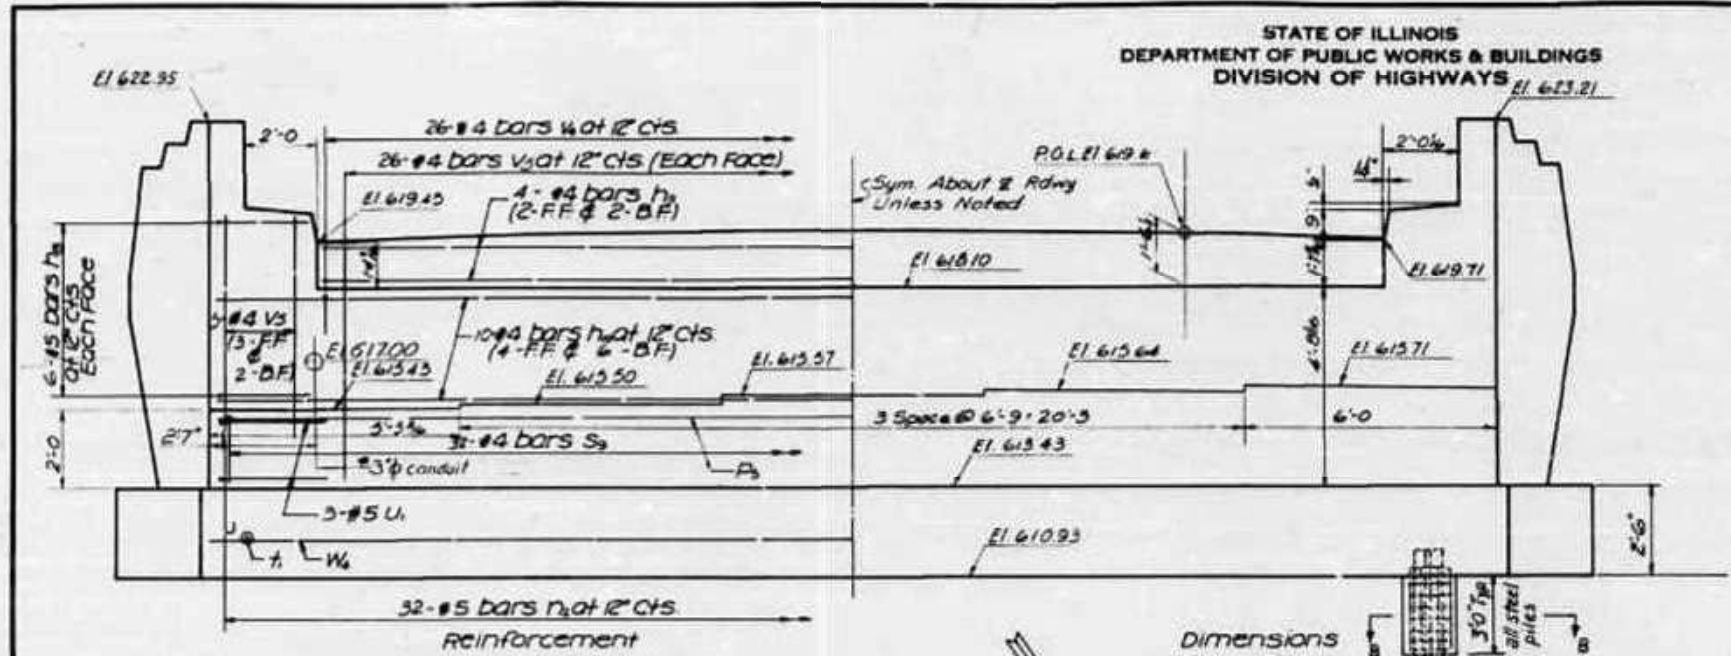 STATE OF ILLINOIS
DEPARTMENT OF PUBLIC WORKS & BUILDINGS
DIVISION OF HIGHWAYS
El. 622.95
El. 623.21
2'-0
26-#4 bars V4 at 12" Cts.
26-#4 bars V3 at 12" Cts (Each Face)
El. 619.45
4- #4 bars h3
(2-F.F. & 2-B.F.)
Sym. About ℄ Rdwy
Unless Noted
P.O.L. El. 619.
El. 618.10
El. 619.71
6-#5 bars h8
at 12" Cts
Each Face
#4 V3
3-F.F.
&
2-B.F.
El. 617.00
El. 615.43
10-#4 bars h at 12" Cts.
(4-F.F. & 6-B.F.)
El. 615.50
El. 615.57
El. 615.64
El. 615.71
3 Space @ 6'-9 = 20'-3
6'-0
2'-0
2'7"
#4 bars S9
El. 613.43
3"φ conduit
P3
3-#5 U1
t1
W4
El. 610.93
2'-6"
32-#5 bars n at 12" Cts.
Reinforcement
Dimensions
3'0" Typ
all steel
piles
B
B